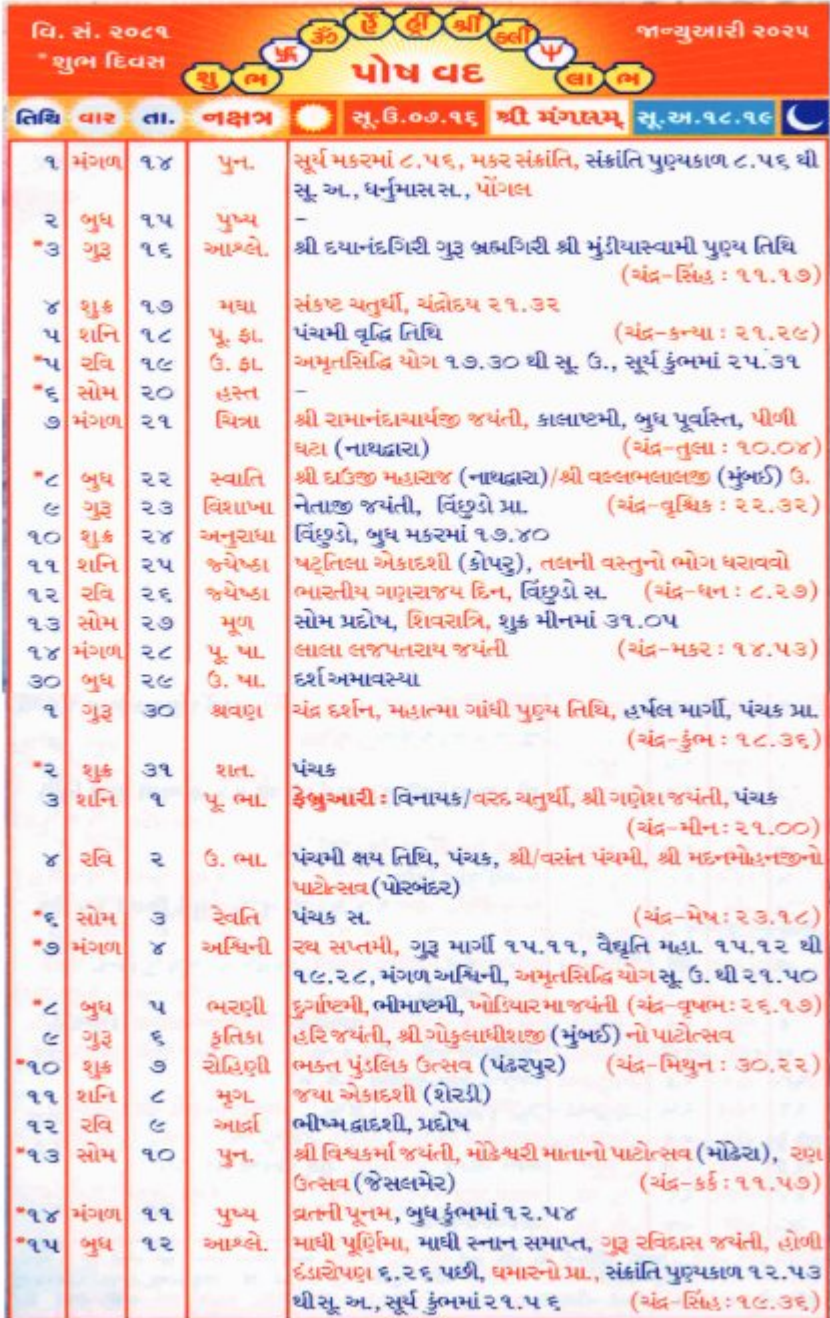 વિ. સં. ૨૦૮૧
જાન્યુઆરી ૨૦૨૫
*શુભ દિવસ
શુ ભ 卐 ૐ હ્રીં શ્રીં ક્લીં લા ભ
પોષ વદ
તિથિ વાર તા. નક્ષત્ર સૂ.ઉ.૦૭.૧૬ શ્રી મંગલમ્ સૂ.અ.૧૮.૧૯
૧ મંગળ ૧૪ પુન. સૂર્ય મકરમાં ૮.૫૬, મકર સંક્રાંતિ, સંક્રાંતિ પુણ્યકાળ ૮.૫૬ થી
સૂ. અ., ધર્નુમાસ સ., પોંગલ
૨ બુધ ૧૫ પુષ્ય –
*૩ ગુરૂ ૧૬ આશ્લે. શ્રી દયાનંદગિરી ગુરૂ બ્રહ્મગિરી શ્રી મુંડીયાસ્વામી પુણ્ય તિથિ
(ચંદ્ર-સિંહ : ૧૧.૧૭)
૪ શુક્ર ૧૭ મઘા સંકષ્ટ ચતુર્થી, ચંદ્રોદય ૨૧.૩૨
૫ શનિ ૧૮ પૂ. ફા. પંચમી વૃદ્ધિ તિથિ (ચંદ્ર-કન્યા : ૨૧.૨૯)
*૫ રવિ ૧૯ ઉ. ફા. અમૃતસિદ્ધિ યોગ ૧૭.૩૦ થી સૂ. ઉ., સૂર્ય કુંભમાં ૨૫.૩૧
*૬ સોમ ૨૦ હસ્ત –
૭ મંગળ ૨૧ ચિત્રા શ્રી રામાનંદાચાર્યજી જયંતી, કાલાષ્ટમી, બુધ પૂર્વાસ્ત, પીળી
ઘટા (નાથદ્વારા) (ચંદ્ર-તુલા : ૧૦.૦૪)
*૮ બુધ ૨૨ સ્વાતિ શ્રી દાઉજી મહારાજ (નાથદ્વારા)/શ્રી વલ્લભલાલજી (મુંબઈ) ઉ.
૯ ગુરૂ ૨૩ વિશાખા નેતાજી જયંતી, વિંછુડો પ્રા. (ચંદ્ર-વૃશ્ચિક : ૨૨.૩૨)
૧૦ શુક્ર ૨૪ અનુરાધા વિંછુડો, બુધ મકરમાં ૧૭.૪૦
૧૧ શનિ ૨૫ જ્યેષ્ઠા ષટ્તિલા એકાદશી (કોપરુ), તલની વસ્તુનો ભોગ ધરાવવો
૧૨ રવિ ૨૬ જ્યેષ્ઠા ભારતીય ગણરાજ્ય દિન, વિંછુડો સ. (ચંદ્ર-ધન : ૮.૨૭)
૧૩ સોમ ૨૭ મૂળ સોમ પ્રદોષ, શિવરાત્રિ, શુક્ર મીનમાં ૩૧.૦૫
૧૪ મંગળ ૨૮ પૂ. ષા. લાલા લજપતરાય જયંતી (ચંદ્ર-મકર : ૧૪.૫૩)
૩૦ બુધ ૨૯ ઉ. ષા. દર્શ અમાવસ્યા
૧ ગુરૂ ૩૦ શ્રવણ ચંદ્ર દર્શન, મહાત્મા ગાંધી પુણ્ય તિથિ, હર્ષલ માર્ગી, પંચક પ્રા.
(ચંદ્ર-કુંભ : ૧૮.૩૬)
*૨ શુક્ર ૩૧ શત. પંચક
૩ શનિ ૧ પૂ. ભા. ફેબ્રુઆરી : વિનાયક/વરદ ચતુર્થી, શ્રી ગણેશ જયંતી, પંચક
(ચંદ્ર-મીન : ૨૧.૦૦)
૪ રવિ ૨ ઉ. ભા. પંચમી ક્ષય તિથિ, પંચક, શ્રી/વસંત પંચમી, શ્રી મદનમોહનજીનો
પાટોત્સવ (પોરબંદર)
*૬ સોમ ૩ રેવતિ પંચક સ. (ચંદ્ર-મેષ : ૨૩.૧૮)
*૭ મંગળ ૪ અશ્વિની રથ સપ્તમી, ગુરૂ માર્ગી ૧૫.૧૧, વૈધૃતિ મહા. ૧૫.૧૨ થી
૧૯.૨૮, મંગળ અશ્વિની, અમૃતસિદ્ધિ યોગ સૂ. ઉ. થી ૨૧.૫૦
*૮ બુધ ૫ ભરણી દુર્ગાષ્ટમી, ભીમાષ્ટમી, ખોડિયાર મા જયંતી (ચંદ્ર-વૃષભ : ૨૬.૧૭)
૯ ગુરૂ ૬ કૃતિકા હરિ જયંતી, શ્રી ગોકુલાધીશજી (મુંબઈ) નો પાટોત્સવ
*૧૦ શુક્ર ૭ રોહિણી ભક્ત પુંડલિક ઉત્સવ (પંઢરપુર) (ચંદ્ર-મિથુન : ૩૦.૨૨)
૧૧ શનિ ૮ મૃગ. જયા એકાદશી (શેરડી)
૧૨ રવિ ૯ આર્દ્રા ભીષ્મ દ્વાદશી, પ્રદોષ
*૧૩ સોમ ૧૦ પુન. શ્રી વિશ્વકર્મા જયંતી, મોઢેશ્વરી માતાનો પાટોત્સવ (મોઢેરા), રણ
ઉત્સવ (જેસલમેર) (ચંદ્ર-કર્ક : ૧૧.૫૭)
*૧૪ મંગળ ૧૧ પુષ્ય વ્રતની પૂનમ, બુધ કુંભમાં ૧૨.૫૪
*૧૫ બુધ ૧૨ આશ્લે. માઘી પૂર્ણિમા, માઘી સ્નાન સમાપ્ત, ગુરૂ રવિદાસ જયંતી, હોળી
દંડારોપણ ૬.૨૬ પછી, ઘમારનો પ્રા., સંક્રાંતિ પુણ્યકાળ ૧૨.૫૩
થી સૂ. અ., સૂર્ય કુંભમાં ૨૧.૫૬ (ચંદ્ર-સિંહ : ૧૯.૩૬)